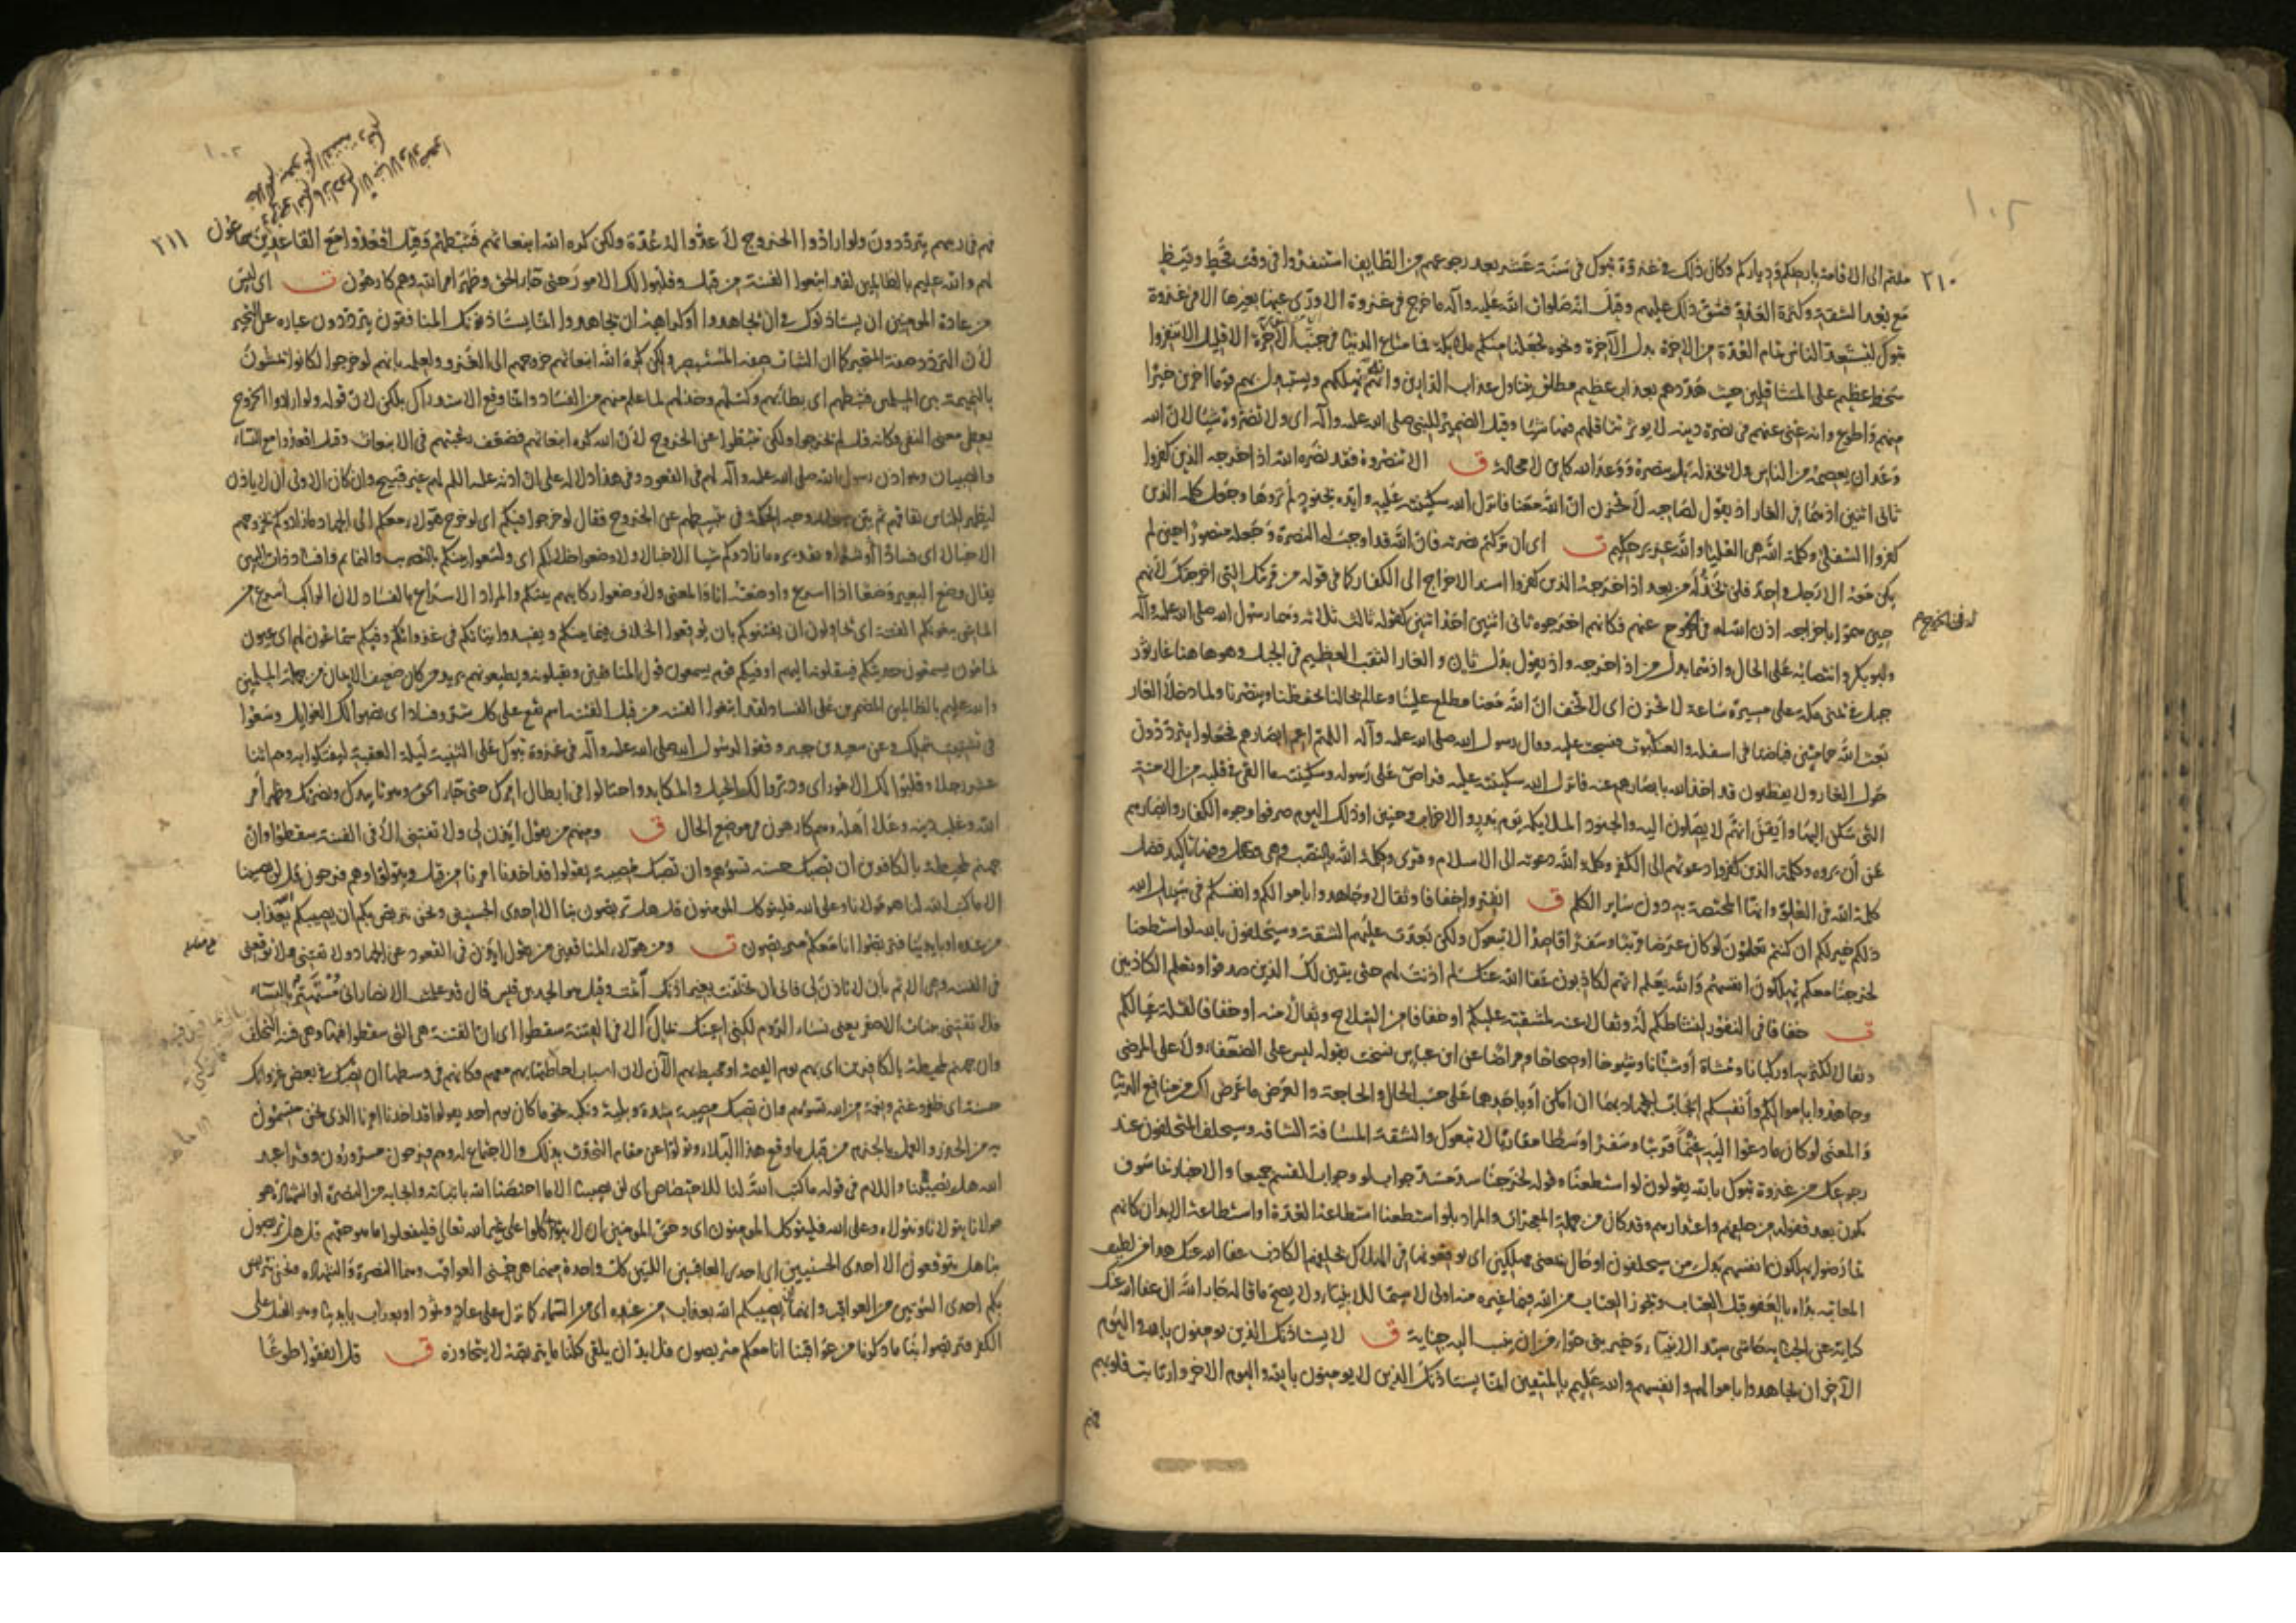 ٢١٠
ملتم الى الاقامة بارضكم ودياركم وكان ذلك في غزوة تبوك في سنة عشر بعد رجوعهم من الطايف استنفروا في وقت قحط وقيظ
مع بعد الشقة وكثرة العدو فشق ذلك عليهم وقيل انه صلوات الله عليه وآله ما خرج في غزوة الا ورّى عنها بغيرها الا في غزوة
تبوك ليستعد الناس تمام العدة من الآخرة بدل الآخرة ونحوه لجعلنا منكم ملائكة فما متاع الدنيا في جنب الآخرة الا قليل الا تنفروا
سخط عظيم على المتثاقلين حيث هددهم بعذاب عظيم مطلق يتناول عذاب الدارين وانه يهلكهم ويستبدل بهم قوما آخرين خيرا
منهم واطوع وانه غني عنهم في نصرة دينه لا يؤثر تثاقلهم فيها شيئا وقيل الضمير للنبي صلى الله عليه وآله اى ولا تضروه شيئا لان الله
وعد ان يعصمه من الناس ولا يخذله بل ينصره ووعد الله كاين لا محالة ق الا تنصروه فقد نصره الله اذ اخرجه الذين كفروا
ثانى اثنين اذ هما في الغار اذ يقول لصاحبه لا تحزن ان الله معنا فانزل الله سكينته عليه وايده بجنود لم تروها وجعل كلمة الذين
كفروا السفلى وكلمة الله هي العليا والله عزيز حكيم ق اى ان تركتم نصرته فان الله قد اوجب له النصرة وجعله منصورا حين لم
يكن معه الا رجل واحد فلن يخذله من بعد اذ اخرجه الذين كفروا اسند الاخراج الى الكفار كما في قوله من قريتك التى اخرجتك لانهم
حين هموا باخراجه اذن الله له في الخروج عنهم فكانهم اخرجوه ثانى اثنين احد اثنين كقوله ثالث ثلاثه وهما رسول الله صلى الله عليه وآله
وابو بكر وانتصابه على الحال واذ هما بدل من اذ اخرجه واذ يقول بدل ثان والغار الثقب العظيم في الجبل وهو هاهنا غار ثور
جبل في يمنى مكة على مسيرة ساعة لا تحزن اى لا تخف ان الله معنا مطلع علينا وعالم بحالنا يحفظنا وينصرنا ولما دخلا الغار
بعث الله حمامتين فباضتا في اسفله والعنكبوت فنسجت عليه وقال رسول الله صلى الله عليه وآله اللهم اعم ابصارهم فجعلوا يترددون
حول الغار ولا يفطنون قد اخذ الله بابصارهم عنه فانزل الله سكينته عليه قرا ص على رسوله وسكينته ما القى في قلبه من الامنة
التى سكن اليها وايقن انهم لا يصلون اليه والجنود الملائكة يوم بدر والاحزاب وحنين او ذلك اليوم صرفوا وجوه الكفار وابصارهم
عن ان يروه وكلمة الذين كفروا دعوتهم الى الكفر وكلمة الله دعوته الى الاسلام وقرى وكلمة الله بالنصب وهى فصل وفيها تاكيد فضل
كلمة الله في العلو وانها المختصة به دون ساير الكلم ق انفروا خفافا وثقالا وجاهدوا باموالكم وانفسكم في سبيل الله
ذلكم خير لكم ان كنتم تعلمون لو كان عرضا قريبا وسفرا قاصدا لاتبعوك ولكن بعدت عليهم الشقة وسيحلفون بالله لو استطعنا
لخرجنا معكم يهلكون انفسهم والله يعلم انهم لكاذبون عفا الله عنك لم اذنت لهم حتى يتبين لك الذين صدقوا وتعلم الكاذبين
ق خفافا في النفور لنشاطكم له وثقالا عنه لمشقته عليكم او خفافا من السلاح وثقالا منه او خفافا لقلة عيالكم
وثقالا لكثرتهم او ركبانا ومشاة او شبانا وشيوخا او صحاحا ومراضا عن ابن عباس نسخت بقوله ليس على الضعفاء ولا على المرضى
وجاهدوا باموالكم وانفسكم ايجاب للجهاد بهما ان امكن او باحدهما على حسب الحال والحاجة والعرض ما عرض لك من منافع الدنيا
والمعنى لو كان ما دعوا اليه غنما قريبا وسفرا وسطا مقاربا لاتبعوك والشقة المسافة الشاقه وسيحلف المتخلفون عند
رجوعك من غزوة تبوك بالله يقولون لو استطعنا وقوله لخرجنا سد مسد جواب لو وجواب القسم جميعا والاخبار بما سوف
يكون بعد قفوله من حلفهم واعتذارهم وقد كان من جملة المعجزات والمراد بلو استطعنا استطاعة العدة او استطاعة الابدان كانهم
تمارضوا يهلكون انفسهم بدل من سيحلفون او حال بمعنى مهلكين اى يوقعونها في الهلاك بحلفهم الكاذب عفا الله عنك هذا من لطيف
المعاتبة بداه بالعفو قبل العتاب ويجوز العتاب من الله فيما غيره منه اولى لا سيما للانبياء ولا يصح ما قاله جار الله ان عفا الله عنك
كناية عن الجناية حاشى سيد الانبياء وخير بنى حواء من ان ينسب اليه جناية ق لا يستاذنك الذين يومنون بالله واليوم
الآخر ان يجاهدوا باموالهم وانفسهم والله عليم بالمتقين انما يستاذنك الذين لا يومنون بالله واليوم الاخر وارتابت قلوبهم
فهم
٢١١
فهم في ريبهم يترددون ولو ارادوا الخروج لاعدوا له عدة ولكن كره الله انبعاثهم فثبطهم وقيل اقعدوا مع القاعدين سماعون
لهم والله عليم بالظالمين لقد ابتغوا الفتنة من قبل وقلبوا لك الامور حتى جاء الحق وظهر امر الله وهم كارهون ق اى ليس
من عادة المومنين ان يستاذنوك في ان يجاهدوا او كراهة ان يجاهدوا انما يستاذنك المنافقون يترددون عباره عن التحير
لان التردد صفة المتحير كما ان الثبات صفة المستبصر ولكن كره الله انبعاثهم خروجهم الى الغزو ولعلمه بانهم لو خرجوا لكانوا يمشون
بالنميمة بين المسلمين فثبطهم اى بطاهم وكسلهم وخذلهم لما علم منهم من الفساد وانما وقع الاستدراك بلكن لان قوله ولو ارادوا الخروج
يعطى معنى النفى وكانه قيل لم يخرجوا ولكن تثبطوا عن الخروج لان الله كره انبعاثهم فضعف رغبتهم في الانبعاث وقيل اقعدوا مع النساء
والصبيان وهو اذن رسول الله صلى الله عليه وآله لهم في القعود وفي هذا دلاله على ان اذنه عليه السلم لهم غير قبيح وان كان الاولى ان لا ياذن
ليظهر للناس نفاقهم ثم بين سبحانه وجه الحكمة في تثبيطهم عن الخروج فقال لو خرجوا فيكم اى لو خرج هولاء معكم الى الجهاد ما زادوكم بخروجهم
الا خبالا اى فسادا او شرا وتقديره ما زادوكم شيئا الا خبالا ولاوضعوا خلالكم اى ولسعوا بينكم بالتضريب والنمايم وافساد ذات البين
يقال وضع البعير وضعا اذا اسرع واوضعته انا والمعنى ولاوضعوا ركابهم بينكم والمراد الاسراع بالفساد لان الراكب اسرع من
الماشى يبغونكم الفتنة اى يحاولون ان يفتنوكم بان يوقعوا الخلاف فيما بينكم ويفسدوا نياتكم في غزواتكم وفيكم سماعون لهم اى عيون
نمامون يسمعون حديثكم فينقلونه اليهم او فيكم قوم يسمعون قول المنافقين ويقبلونه ويطيعونهم يريد من كان ضعيف الايمان من جملة المسلمين
والله عليم بالظالمين المضمرين على الفساد لقد ابتغوا الفتنة من قبل الفتنه اسم يقع على كل شر وفساد اى نصبوا لك الغوايل وسعوا
في تشتيت شملك وعن سعيد بن جبير وقفوا لرسول الله صلى الله عليه وآله في غزوة تبوك على الثنية ليلة العقبة ليفتكوا به وهم اثنا
عشر رجلا وقلبوا لك الامور اى ودبروا لك الحيل والمكايد واحتالوا في ابطال امرك حتى جاء الحق وهو تاييدك ونصرك وظهر امر
الله وغلب دينه وعلا اهله وهم كارهون في موضع الحال ق ومنهم من يقول ائذن لى ولا تفتنى الا في الفتنة سقطوا وان
جهنم لمحيطة بالكافرين ان تصبك حسنة تسؤهم وان تصبك مصيبة يقولوا قد اخذنا امرنا من قبل ويتولوا وهم فرحون قل لن يصيبنا
الا ما كتب الله لنا هو مولانا وعلى الله فليتوكل المومنون قل هل تربصون بنا الا احدى الحسنيين ونحن نتربص بكم ان يصيبكم الله بعذاب
من عنده او بايدينا فتربصوا انا معكم متربصون ق ومن هولاء المنافقين من يقول ائذن في القعود عن الجهاد ولا تفتنى ولا توقعنى
في الفتنه وهى الاثم بان لا تاذن لى فانى ان تخلفت بغير اذنك اثمت وقيل هو الجد بن قيس قال قد علمت الانصار انى مستهتر بالنساء
فلا تفتنى ببنات الاصفر يعنى نساء الروم لكنى اعينك بمال الا في الفتنة سقطوا اى ان الفتنة هى التى سقطوا فيها وهى فتنة التخلف
وان جهنم لمحيطة بالكافرين اى بهم يوم القيمة او محيطة بهم الآن لان اسباب احاطتها بهم معهم فكانهم في وسطها ان تصبك في بعض غزواتك
حسنة اى ظفر وغنم ونعمة من الله تسؤهم وان تصبك مصيبة شدة وبلية ونكبة نحو ما كان يوم احد يقولوا قد اخذنا امرنا الذى نحن متسمون
به من الحذر والعمل بالحزم من قبل ما وقع هذا البلاء وتولوا عن مقام التحدث بذلك والاجتماع له وهم فرحون مسرورون وقرا عبد
الله هل يصيبنا واللام في قوله ما كتب الله لنا للاختصاص اى لن يصيبنا الا ما اختصنا الله باثباته وايجابه من النصرة او الشهادة هو
مولانا يتولانا ونتولاه وعلى الله فليتوكل المومنون اى وحق المومنين ان لا يتوكلوا على غير الله تعالى فليفعلوا ما هو حقهم قل هل تربصون
بنا هل تتوقعون الا احدى الحسنيين اى احدى العاقبتين اللتين كل واحدة منهما هى حسنى العواقب وهما النصرة والشهاده ونحن نتربص
بكم احدى السوئيين من العواقب وانهما ان يصيبكم الله بعذاب من عنده اى من السماء كما نزل على عاد وثمود او بعذاب بايدينا وهو القتل على
الكفر فتربصوا بنا ما ذكرنا من عواقبنا انا معكم متربصون فلا بد ان يلقى كلنا ما يتربصه لا يتجاوزه ق قل انفقوا طوعا